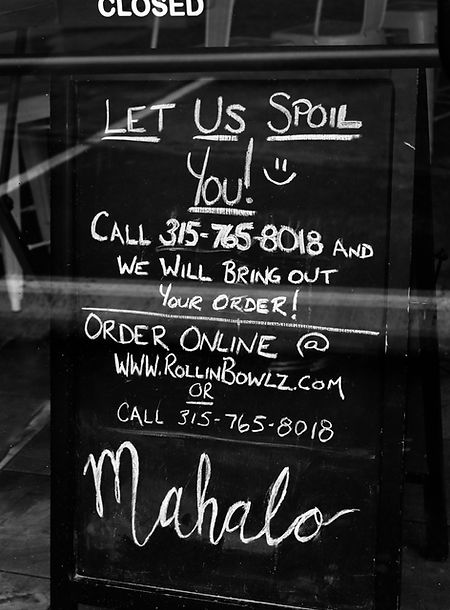 CLOSED
LET US SPOIL
YOU!
CALL 315-765-8018 AND
WE WILL BRING OUT
YOUR ORDER!
ORDER ONLINE @
WWW.ROLLINBOWLZ.COM
OR
CALL 315-765-8018
Mahalo